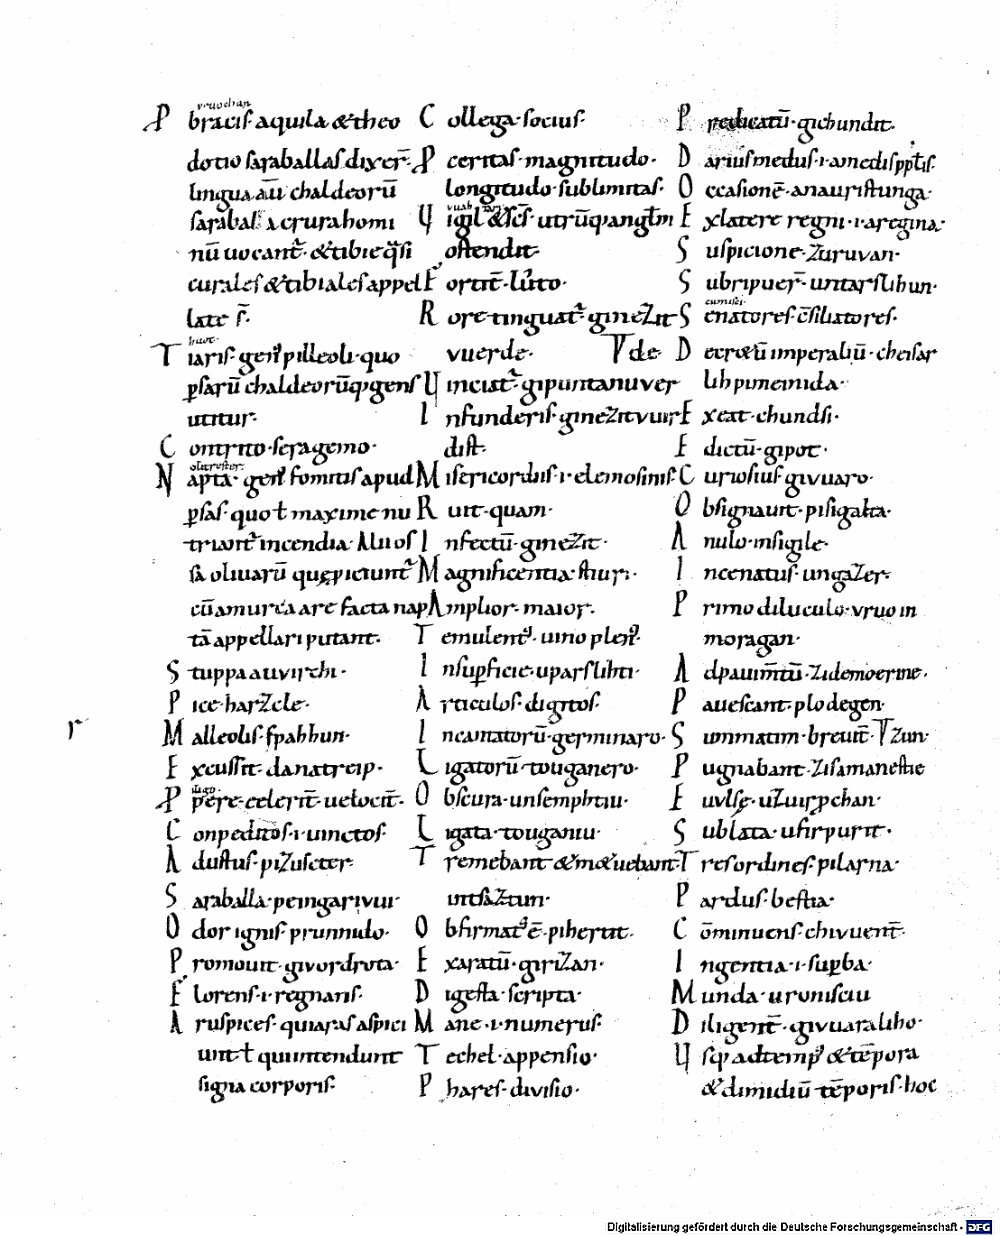 pruochan
P bracis aquila &theo
dotio saraballas dixer̄
lingua aū chaldeorū
sarabal a crura homi
nū uocant̄ · &tibie q̄si
curales &tibiales appel
late s̄.
huot
T iaris · gen̄ pilleoli · quo
ꝑsarū chaldeorūq; gens
utitur ·
C ontrito · feragemo ·
N apta · gen̄ fomitis apud
ꝑsas · quo ł maxime nu
triant̄ incendia · Alii os
sa oliuarū quę piciunt̄
cū amurca arefacta nap
tā appellari putant ·
S tuppa auuirchi ·
P ice · harzcle ·
M alleolis · spahhun ·
E xcussit · danatreip ·
P pere · celerit̄ · uelocit̄ ·
C onpeditos · i · uinctos ·
A dustus · pizuscter ·
S araballa · peingariuui ·
O dor ignis · prunnido ·
P romouit · givordrota ·
F lorens · i · regnans ·
A ruspices · qui aras aspici
unt · ł qui intendunt
signa corporis ·
C ollega · socius ·
P ceritas · magnitudo ·
longitudo · sublimitas ·
V igil &sc̄s · utrūq; angłm
ostendit ·
F ortit̄ ·
R ore tinguat̄ · ginezit
vuerde · V de
V inciat̄ · gipuntanuver
I nfunderis · ginezit vuir
dist ·
M isericordiis · i · elemosinis ·
R uit · quam ·
I nfectū · ginezit ·
M agnificentia · stiuri ·
A mplior · maior ·
T emulent' · uino plen' ·
I nsuꝑficie · uparslihti ·
A rticulos · digitos ·
I ncantatorū · germinaro ·
L igatorū · touganero ·
O bscura · unsemphtiu ·
L igata · touganiu ·
T remebant &m&uebant ·
intsaztun ·
O bfirmat' ē · pihertit ·
E xaratū · girizan ·
D igesta · scripta ·
M ane · i · numerus ·
T echel · appensio ·
P hares · divisio ·
P redicatū · gichundit ·
D arius medus · i · a medis
O ccasionē · anauristunga ·
E x latere regni · i · a regina ·
S uspicione · zuruvan ·
S ubripuer̄ · untarslihun ·
S enatores · c̄siliatores ·
D ecr&ū imperaliū · cheisar
lih pimeinida ·
E xeat · chundsi ·
E dictū · gipot ·
C uriosius · givuaro ·
O bsignauit · pisigalta ·
A nulo · insigile ·
I ncenatus · ungazer ·
P rimo diluculo · vruo in
moragan ·
A dpauim̄tū · zidemoerine ·
P auescant · plodegen
S
P ugnabant · zisamanestie
E
S ublata · ufirpurit ·
T res ordines · pilarna ·
P ardus · bestia ·
C ōminuens · chivuent̄ ·
I ngentia · i · suꝑba ·
M unda · uronisciu
D iligent̄ · givuaraliho ·
V sq; ad temp' &tēpora
&dimidiū tēporis · hoc
r
Digitalisierung gefördert durch die Deutsche Forschungsgemeinschaft - DFG